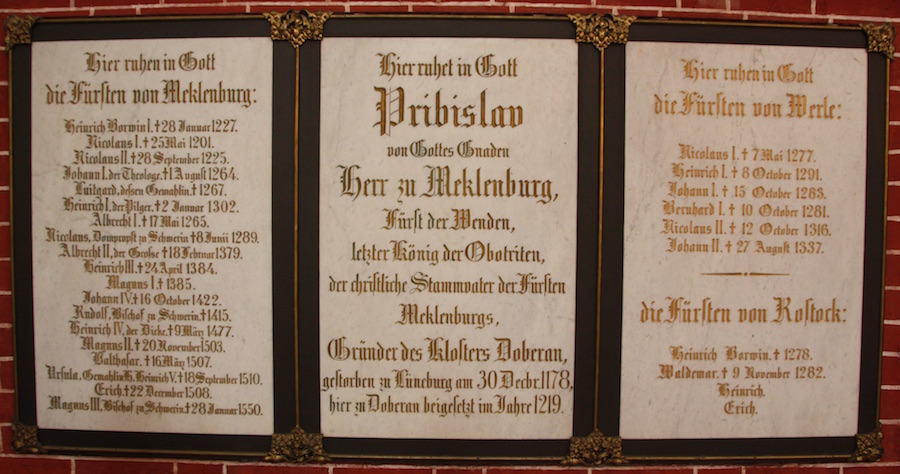 Hier ruhen in Gott
die Fürsten von Meklenburg:
Heinrich Borwin I. † 28 Januar 1227.
Nicolaus I. † 25 Mai 1201.
Nicolaus II. † 28 September 1225.
Johann I. der Theologe. † 1 August 1264.
Luitgard, dessen Gemahlin. † 1267.
Heinrich I. der Pilger. † 2 Januar 1302.
Albrecht I. † 17 Mai 1265.
Nicolaus, Dompropst zu Schwerin † 8 Junii 1289.
Albrecht II, der Grosse † 18 Februar 1379.
Heinrich III. † 24 April 1384.
Magnus I. † 1385.
Johann IV. † 16 October 1422.
Rudolf, Bischof zu Schwerin. † 1415.
Heinrich IV, der Dicke. † 9 März 1477.
Magnus II. † 20 November 1503.
Balthasar. † 16 März 1507.
Ursula, Gemahlin H. Heinrich V. † 18 September 1510.
Erich. † 22 December 1508.
Magnus III, Bischof zu Schwerin † 28 Januar 1550.
Hier ruhet in Gott
Pribislav
von Gottes Gnaden
Herr zu Meklenburg,
Fürst der Wenden,
letzter König der Obotriten,
der christliche Stammvater der Fürsten
Meklenburgs,
Gründer des Klosters Doberan,
gestorben zu Lüneburg am 30 Decbr. 1178,
hier zu Doberan beigesetzt im Jahre 1219.
Hier ruhen in Gott
die Fürsten von Werle:
Nicolaus I. † 7 Mai 1277.
Heinrich I. † 8 October 1291.
Johann I. † 15 October 1283.
Bernhard I. † 10 October 1281.
Nicolaus II. † 12 October 1316.
Johann II. † 27 August 1337.
die Fürsten von Rostock:
Heinrich Borwin. † 1278.
Waldemar. † 9 November 1282.
Heinrich.
Erich.